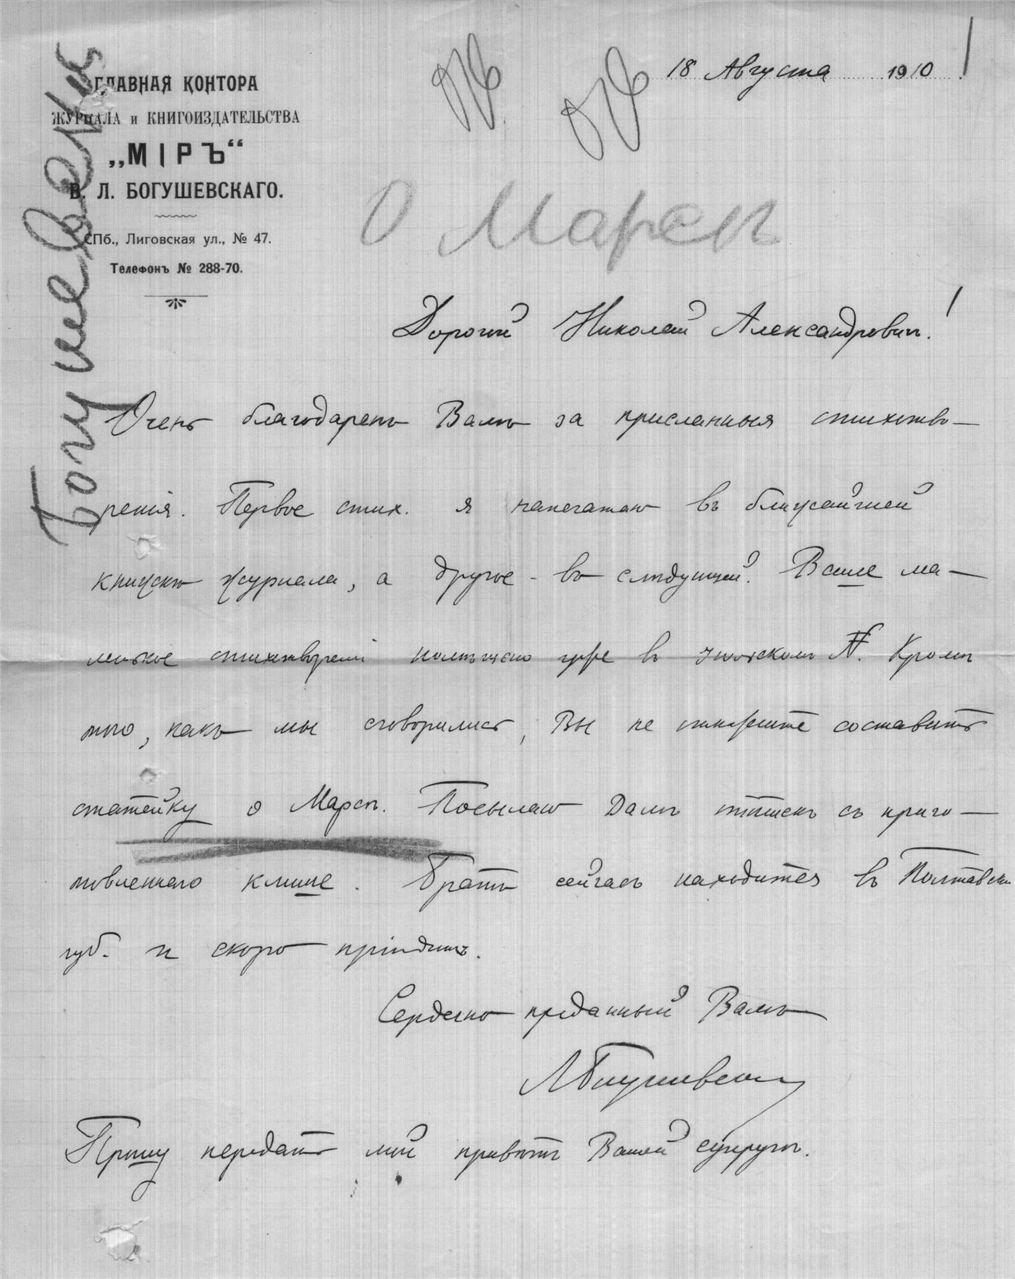 18 Августа 1910
ГЛАВНАЯ КОНТОРА
ЖУРНАЛА и КНИГОИЗДАТЕЛЬСТВА
„МІРЪ“
В. Л. БОГУШЕВСКАГО.
СПб., Лиговская ул., № 47.
Телефонъ № 288-70.
Богушевскій
О Марсѣ
Дорогой Николай Александровичъ!
Очень благодаренъ Вамъ за присланныя стихотво-
ренія. Первое стих. я напечатаю въ ближайшей
книжкѣ журнала, а другое - въ слѣдующей. Ваше ма-
ленькое стихотвореніе въ №. Кромѣ
того, какъ мы сговорились, Вы не откажите составить
статейку о Марсѣ. Посылаю Вамъ оттискъ съ приго-
товленнаго клише. Братъ сейчасъ находится въ Полтавской
губ. и скоро пріѣдетъ.
Сердечно преданный Вамъ
Богушевскій
Прошу передать мой привѣтъ Вашей супругѣ.